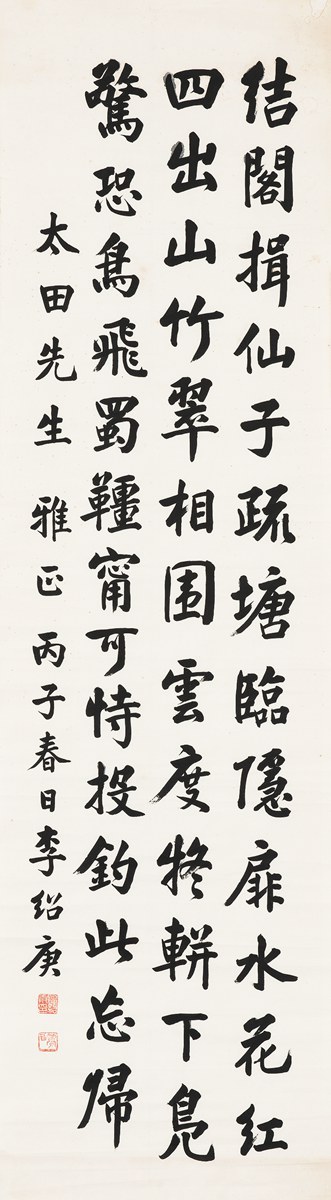 結閣揖仙子疏塘臨隱扉水花紅
四出山竹翠相围雲度疑軿下鳧
驚恐舄飛蜀韁甯可恃投釣此忘歸
太田先生 雅正 丙子春日李紹庚